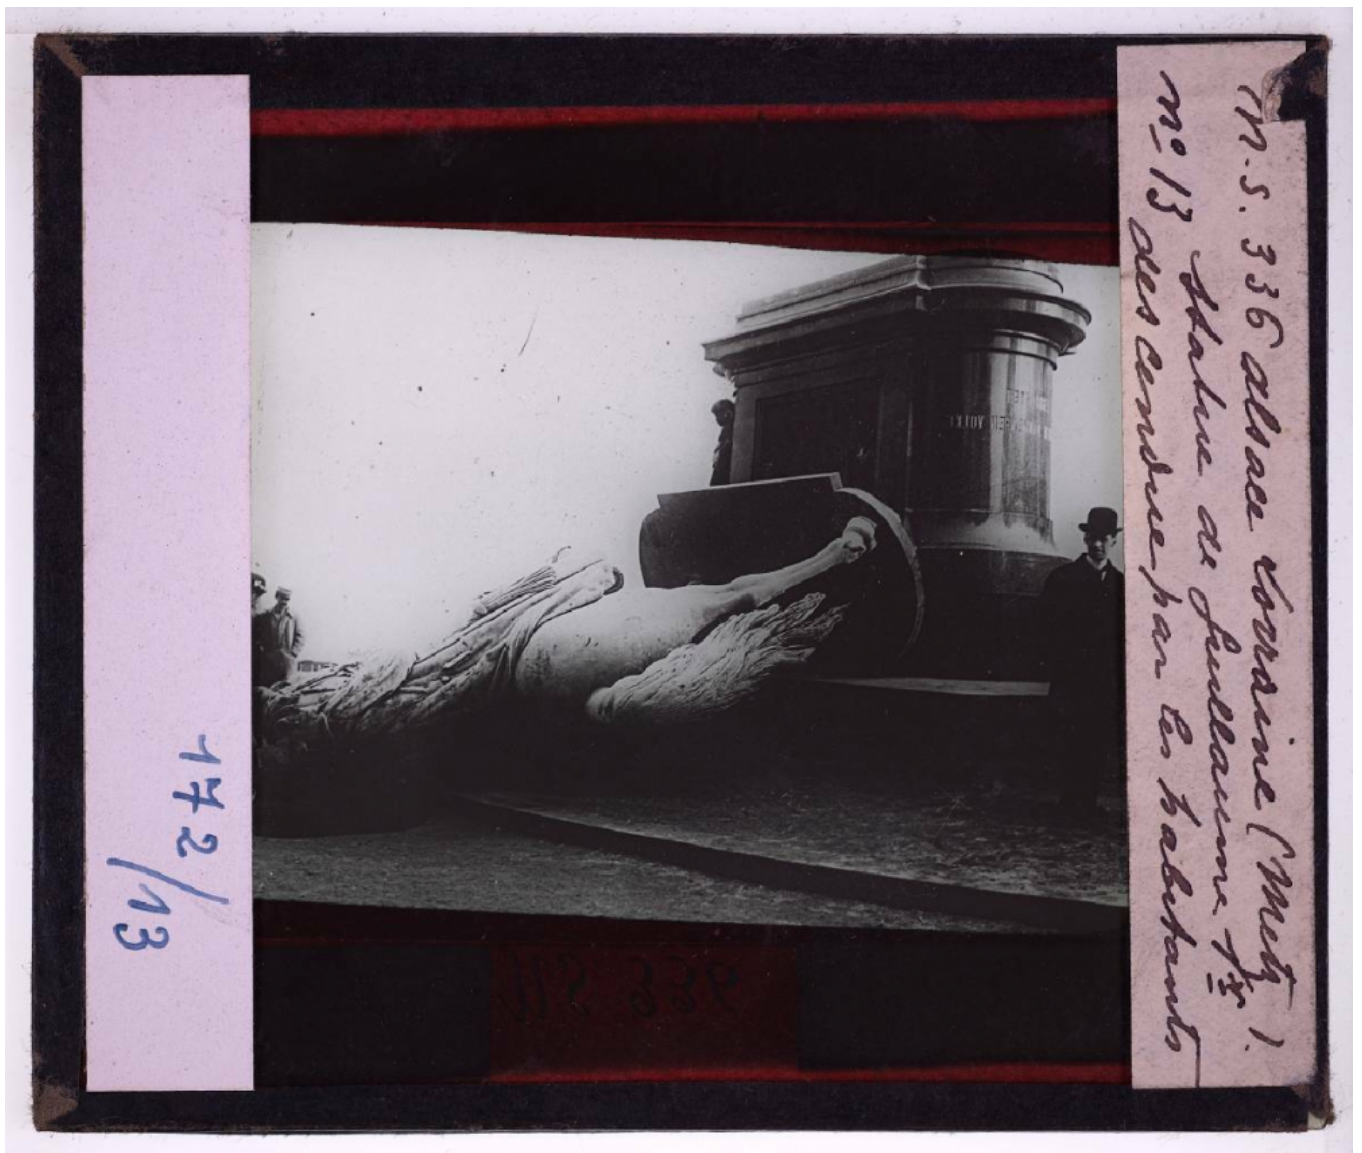 M.S. 336 alsace Lorraine (Metz).
n° 13 Statue de Guillaume 1er
descendue par les habitants
172/13
MS 336